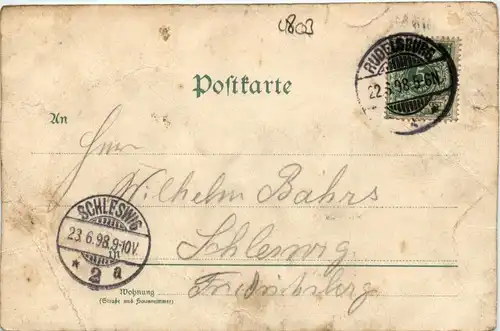 1803
Postkarte
RUDELSBURG
22.6.98.5-6N.
An
Herrn
Wilhelm Bährs
SCHLESWIG
23.6.98.9-10V.
* 2 a
Schleswig
Friedrichsberg
Wohnung
(Straße und Hausnummer)